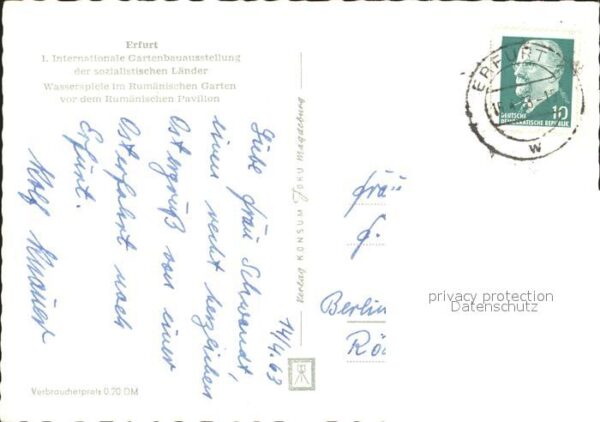 Erfurt
1. Internationale Gartenbauausstellung
der sozialistischen Länder
Wasserspiele im Rumänischen Garten
vor dem Rumänischen Pavillon
14/4.63
Liebe Frau Schwandt,
einen recht herzlichen
Ostergruß von einer
Osterfahrt nach
Erfurt.
Rolf
Verlag KONSUM FOKU Magdeburg
Verbraucherpreis 0,20 DM
ERFURT
W
DEUTSCHE
DEMOKRATISCHE REPUBLIK
10
Frau
Berlin
privacy protection
Datenschutz